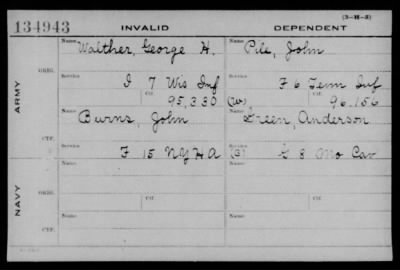 134943 INVALID DEPENDENT
(3-H-3)
ARMY
ORIG.
Name Walther, George H. Name Pile, John
Service I 7 Wis Inf Service F 6 Tenn Inf
Ctf. 95,330 (W) Ctf. 96,156
CTF.
Name Burns, John Name Green, Anderson
Service F 15 NYHA Service (B) G 8 Mo Cav
NAVY
ORIG.
Name Name
Service Ctf. Service Ctf.
CTF.
Name Name